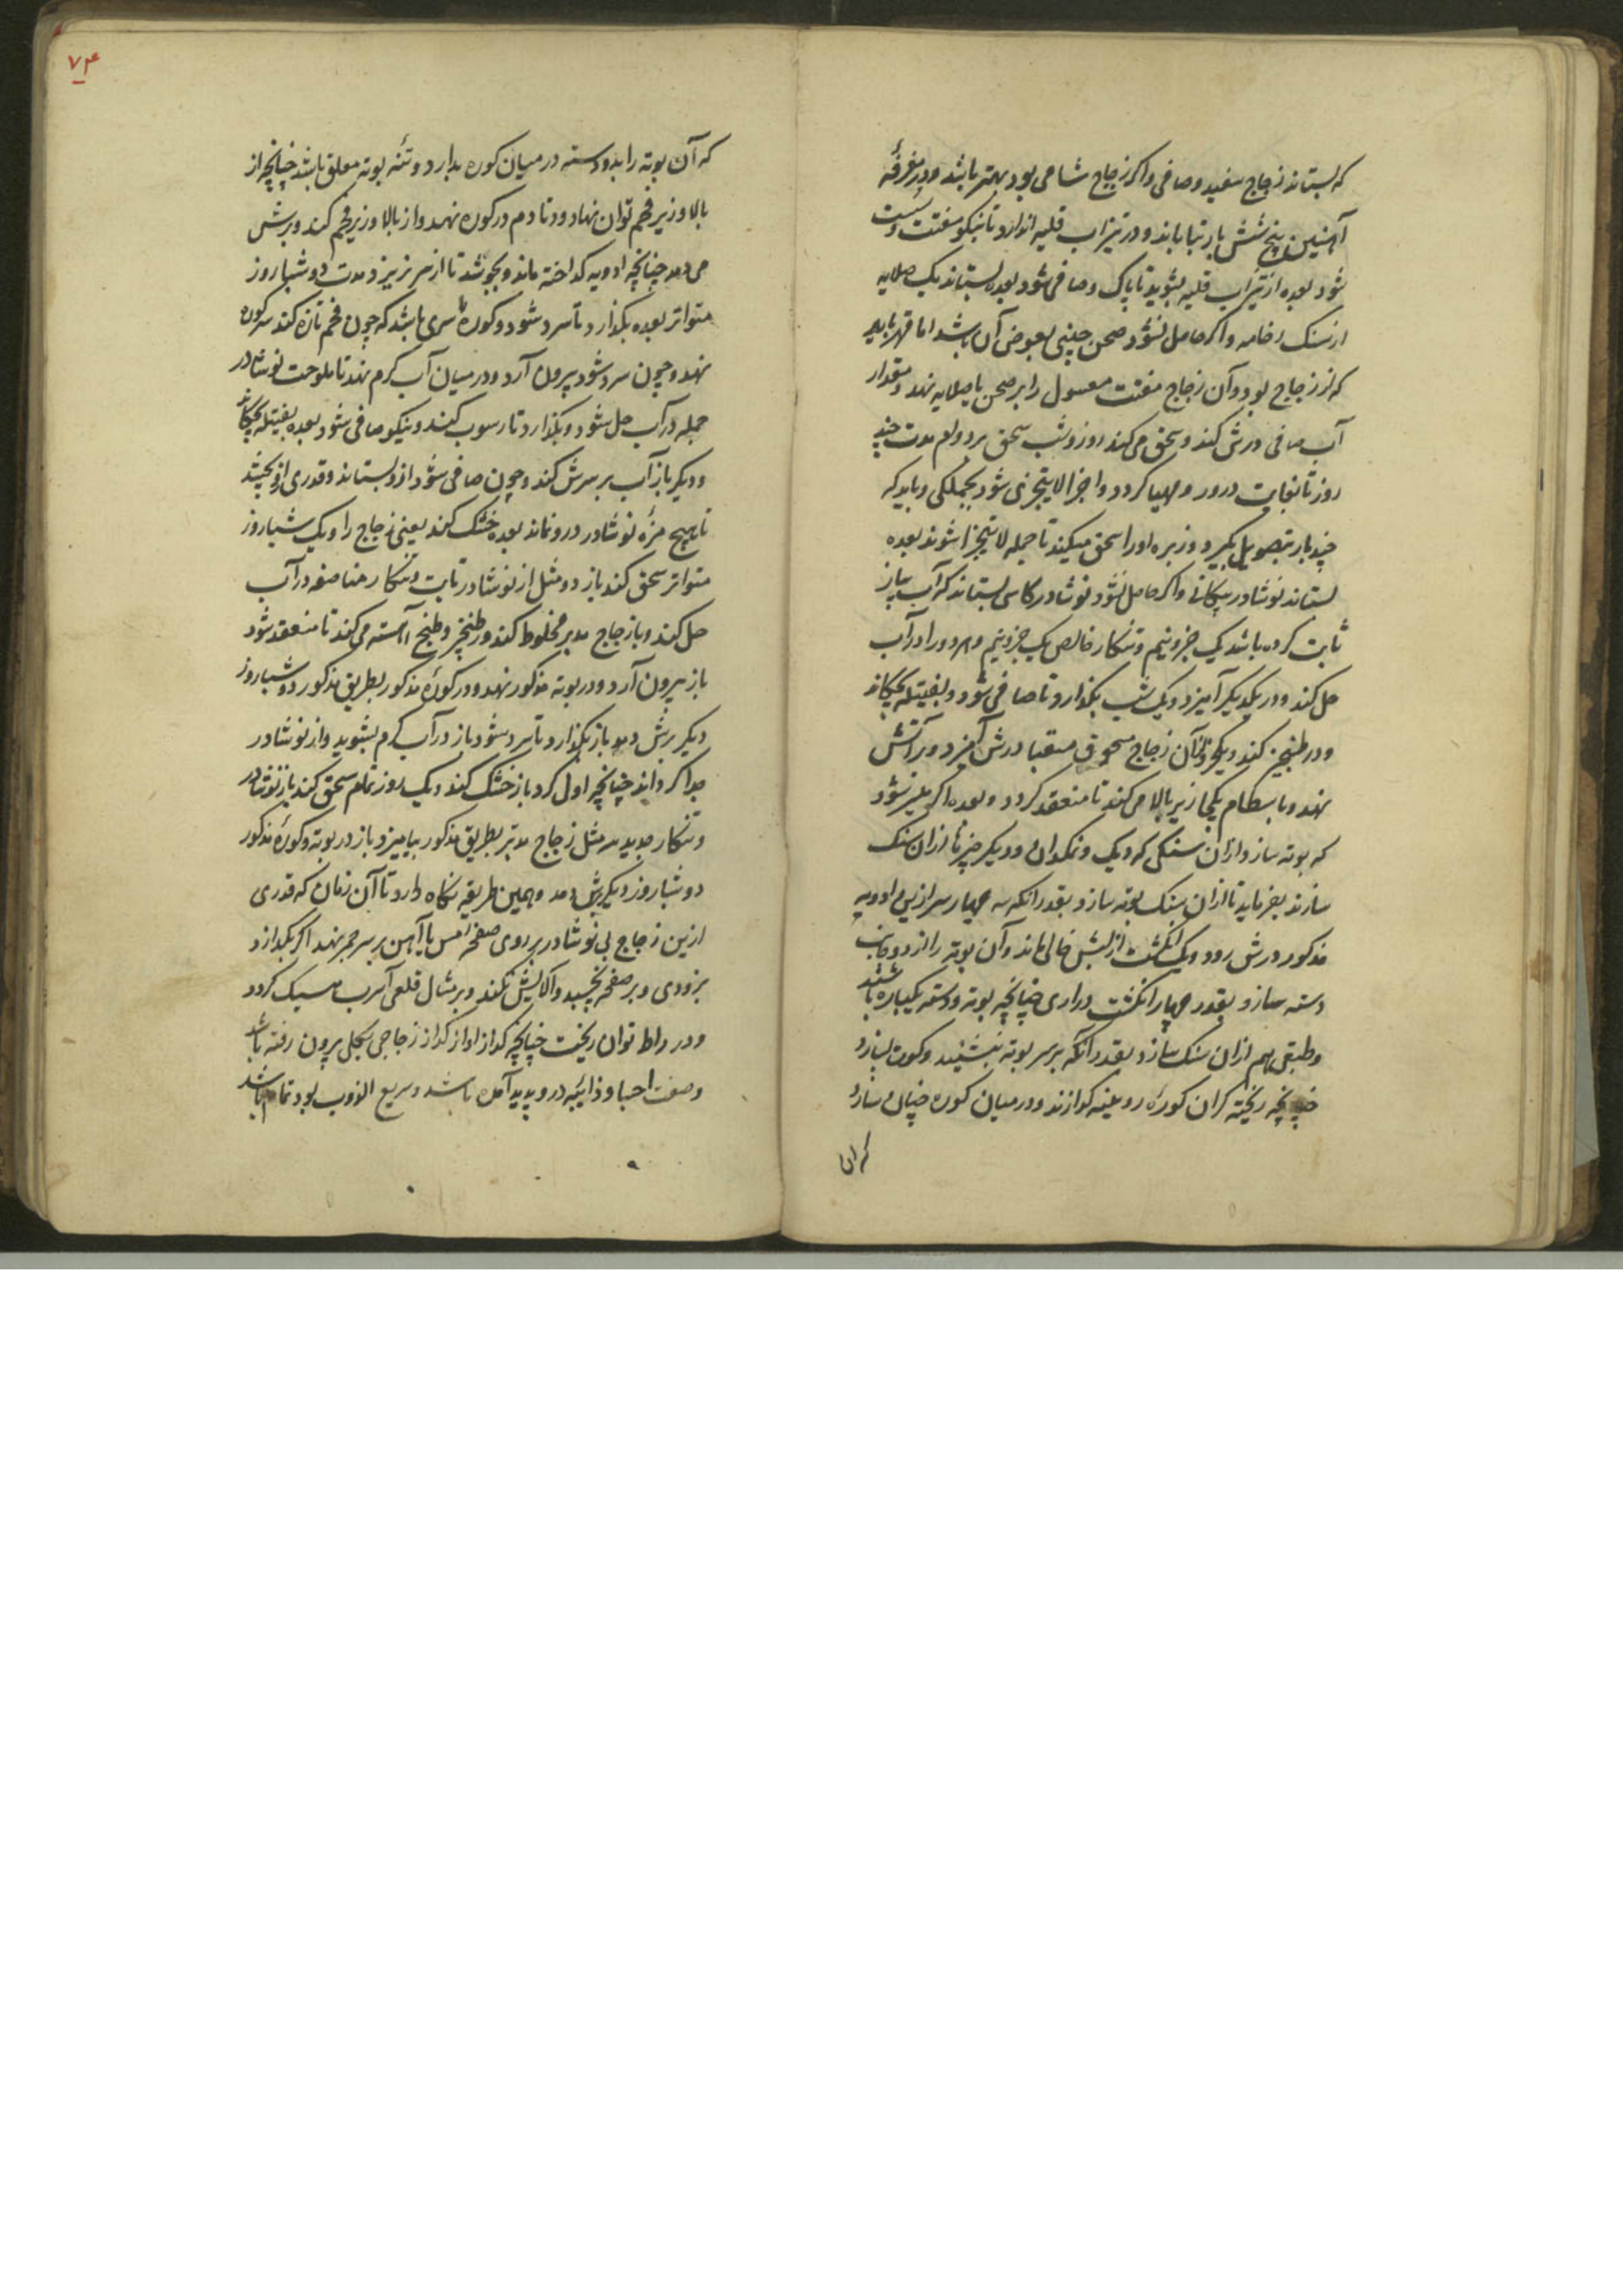 که بستاند زجاج سفید و صافی و اکر زجاج شامی بود بهتر باشد و در مغرفهٔ
آهنین پنج شش بار بتاباند و در تیزاب قلیه اندازد تا نیکو مفتت و سست
شود بعده از تیزاب قلیه بشوید تا پاک و صافی شود بعده بستاند یک صلایه
از سنک رخامه و اکر حاصل نشود صحن چینی بعوض آن باشد اما قهر باید
که از زجاج بود و آن زجاج مفتت مغسول را بر صحن یا صلایه نهد و مقدار
آب صافی درش کند و سحق می کند روز و شب سحق بر دوام مدت چند
روز تا بغایت درور و مهیا کردد و اجزا لایتجزی شود بجملکی و باید که
چند بار بتصویل بکیرد و زبره او را سحق میکند تا جمله لا یتجزا شوند بعده
بستاند نوشادر پیکانی و اکر حاصل نشود نوشادر کاسی بستاند که آب پیاز
ثابت کرده باشد یک جزو نیم و تنکار خالص یک جزو نیم و هر دو را در آب
حل کند و در یکدیکر آمیزد و یک شب بکذارد تا صافی شود و بفتیله بچکاند
و در طنجیر کند و یکجزو از آن زجاج مسحوق مسقیا درش آمیزد و بر آتش
نهد و باسطام یکجا زیر بالا می کند تا منعقد کردد و بعده اکر میسر شود
که بوته سازد از آن سنکی که دیک و نمکدان و دیکر چیزها از آن سنک
سازند بفرماید تا از آن سنک بوته سازد بقدر آنکه سه چهار سیر ازین ادویه
مذکور درش رود و یک انکشت از لبش خالی ماند و آن بوته را از دو جانب
دسته سازد بقدر چهار انکشت درازی چنانچه بوته و دسته یکپاره باشند
و طبقی هم از آن سنک سازد بقدر آنکه بر سر بوته نشیند و کوره بسازد
چنانچه ریخته کران کوره روئینه کدازند و در میان کوره چنان سازد
که آن
۷۴
که آن بوته را بدو دسته در میان کوره بدارد و تنه بوته معلق باشد چنانچه از
بالا و زیر فحم توان نهاد و دو تا دم در کوره نهد و از بالا و زیر فحم کند و برش
می دمد چنانچه ادویه کداخته ماند و بجوشد تا از سر نریزد مدت دو شباروز
متواتر بعده بکذارد تا سرد شود و کوره را سری باشد که چون فحم تازه کند سر کوره
نهد و چون سرد شود بیرون آرد و در میان آب کرم نهد تا ملوحت نوشادر
جمله در آب حل شود و بکذارد تا رسوب کند و نیکو صافی شود بعده بفتیله بچکاند
و دیکر باز آب بر سرش کند و چون صافی شود از و بستاند و قدری از و بچشد
تا هیچ مزهٔ نوشادر درو نماند بعده خشک کند یعنی زجاج را و یک شباروز
متواتر سحق کند باز دو مثل از نوشادر ثابت و تنکار مناصفه در آب
حل کند و با زجاج مدبر مخلوط کند در طنجیر و طبخ آهسته می کند تا منعقد شود
باز بیرون آرد و در بوته مذکور نهد و در کورهٔ مذکور بطریق مذکور دو شباروز
دیکر برش دمد باز بکذارد تا سرد شود باز در آب کرم بشوید و از نوشادر
جدا کرداند چنانچه اول کرد باز خشک کند و یک روز تمام سحق کند باز نوشادر
و تنکار جدید سه مثل زجاج مدبر بطریق مذکور بیامیزد باز در بوته و کورهٔ مذکور
دو شباروز دیکر برش دمد و همین طریقه نکاه دارد تا آن زمان که قدری
ازین زجاج بی نوشادر بر روی صفحه مس یا آهن بر سر جمر نهد اکر بکدازد
بزودی و بر صفحه نچسپد و آلایش نکند و بر مثال قلعی آسرب سبک کردد
و در راط توان ریخت چنانچه کداز او از کداز زجاجی بکلی بیرون رفته باشد
و صفت احبا و ذائبه درو پدید آمده باشد و سریع الذوب بود تمام باشد